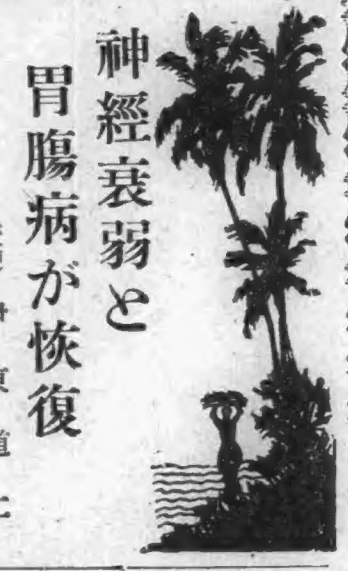 神經衰弱と
胃腸病が恢復